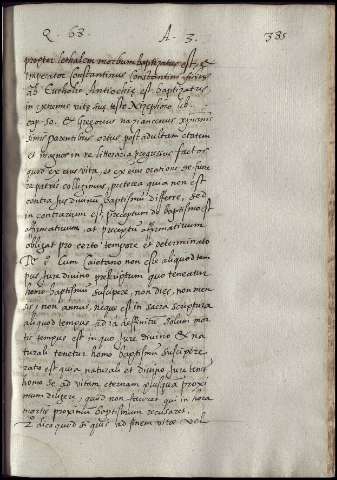 Q. 68. A. 3. 385
propter lethalem morbum baptizatus est, &
imperator Constantinus Constantini
ab Euthoio Antiochiæ est baptizatus
in extremo vitæ suæ teste Nizephoro lib.
cap. 50. & Gregorius nazianzenus
parentibus ortus post adultam etatem
et progressus in re litteraria factos
quod ex eius vita, et ex eius oratione de fune
re patris colligimus, preterea quia non est
contra Jus divinū baptismū differre, sed
in contrarium est, preceptum de baptismo est
affirmativum, at preceptū affirmativum
obligat pro certo tempore et determinato
Cum Caietano non esse aliquod tem
pus Jure divino prescriptum quo teneatur
homo baptismū suscipere, non dies, non men
sis, non annus, neque est in sacra scriptura
aliquod tempus ad id definitū. solum mor
tis tempus est in quo Jure divino & na
turali tenetur homo baptismū suscipere.
ratio est quia naturali et divino Jure tenetur
homo se ad vitam eternam plusquā proxi
mum diligere, quod non faceret qui in hora
mortis proximū baptismum recusaret.
dico quod si quis ad finem vitæ vel